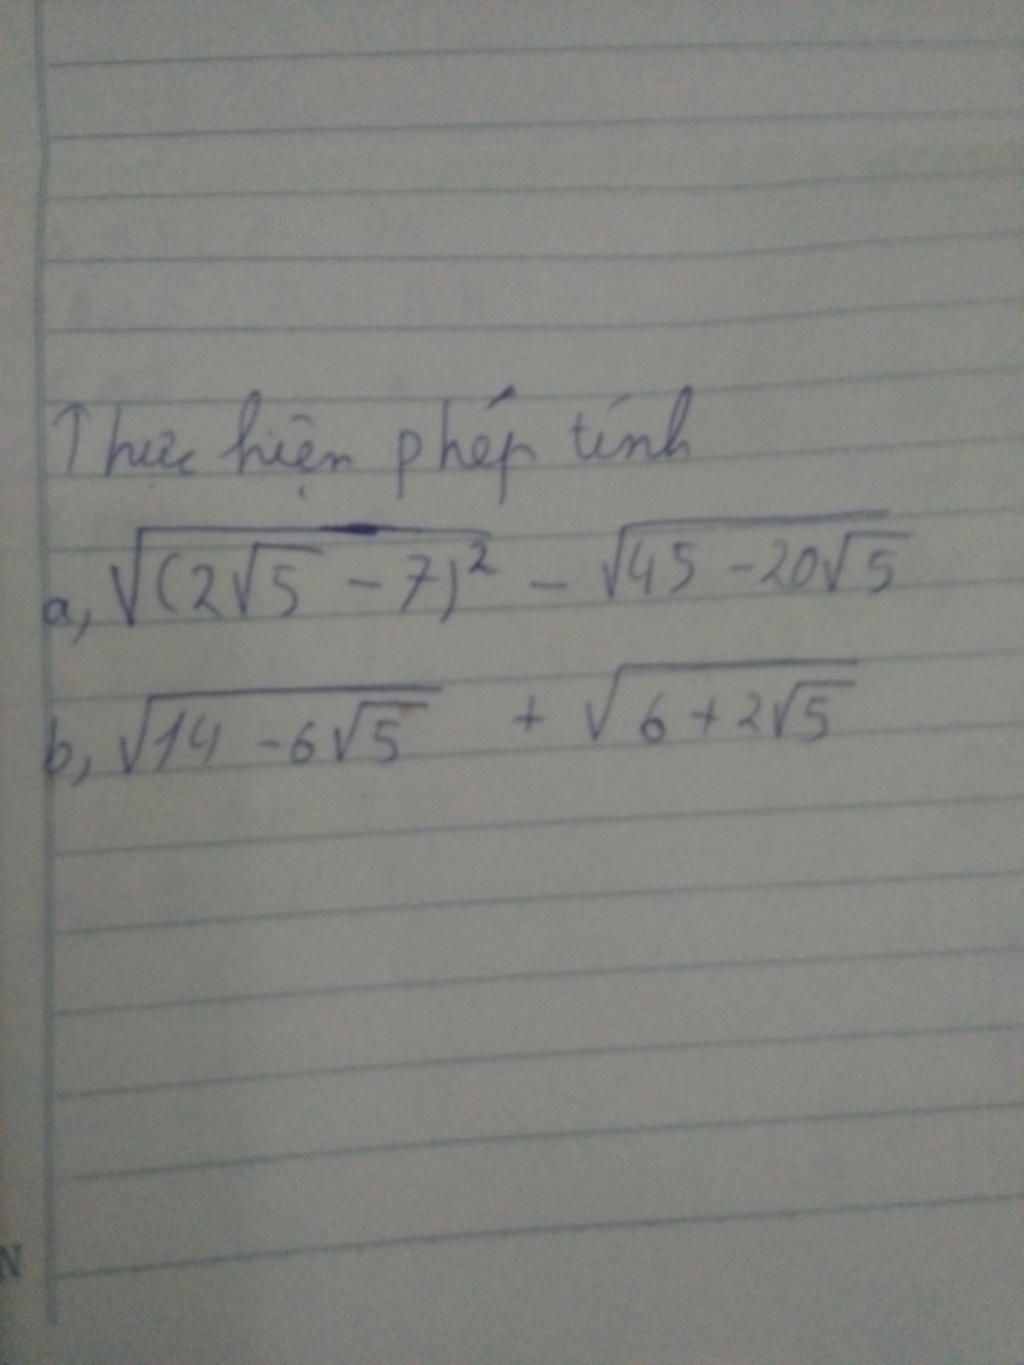 Thực hiện phép tính
a, √(2√5 - 7)² - √45 - 20√5
b, √14 - 6√5 + √6 + 2√5
N